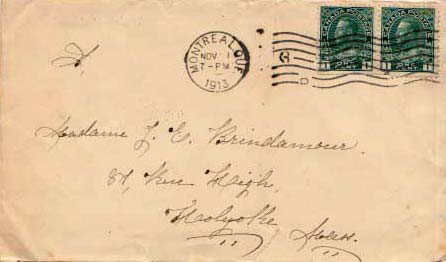 MONTREAL QUE
NOV 1
7-PM
1913
CANADA POSTAGE
CANADA POSTAGE
1 1
1 1
Madame J. E. Brindamour.
Rue High,
Holyoke
Mass.